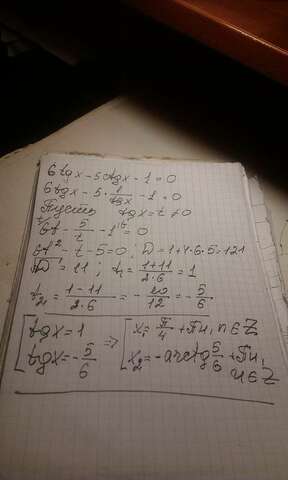 6tgx - 5ctgx - 1 = 0
6tgx - 5 · 1/tgx - 1 = 0
Пусть tgx = t ≠ 0
6t - 5/t - 1 = 0
6t² - t - 5 = 0; D = 1 + 4·6·5 = 121
√D = 11; t₁ = (1+11)/(2·6) = 1
t₂ = (1-11)/(2·6) = -10/12 = -5/6
[tgx = 1 => [x₁ = π/4 + πn, n∈Z
[tgx = -5/6 [x₂ = -arctg 5/6 + πn,
n∈Z